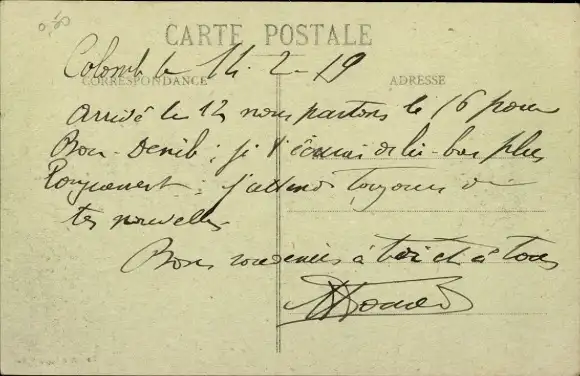 0,50
CARTE POSTALE
Colomb le 14-2-19
CORRESPONDANCE
ADRESSE
Arrivé le 12 nous partons le 16 pour
Bou-Denib ; je t'écrirai de là-bas plus
longuement ; j'attend toujours de
tes nouvelles
Bons souvenirs à toi et à tous